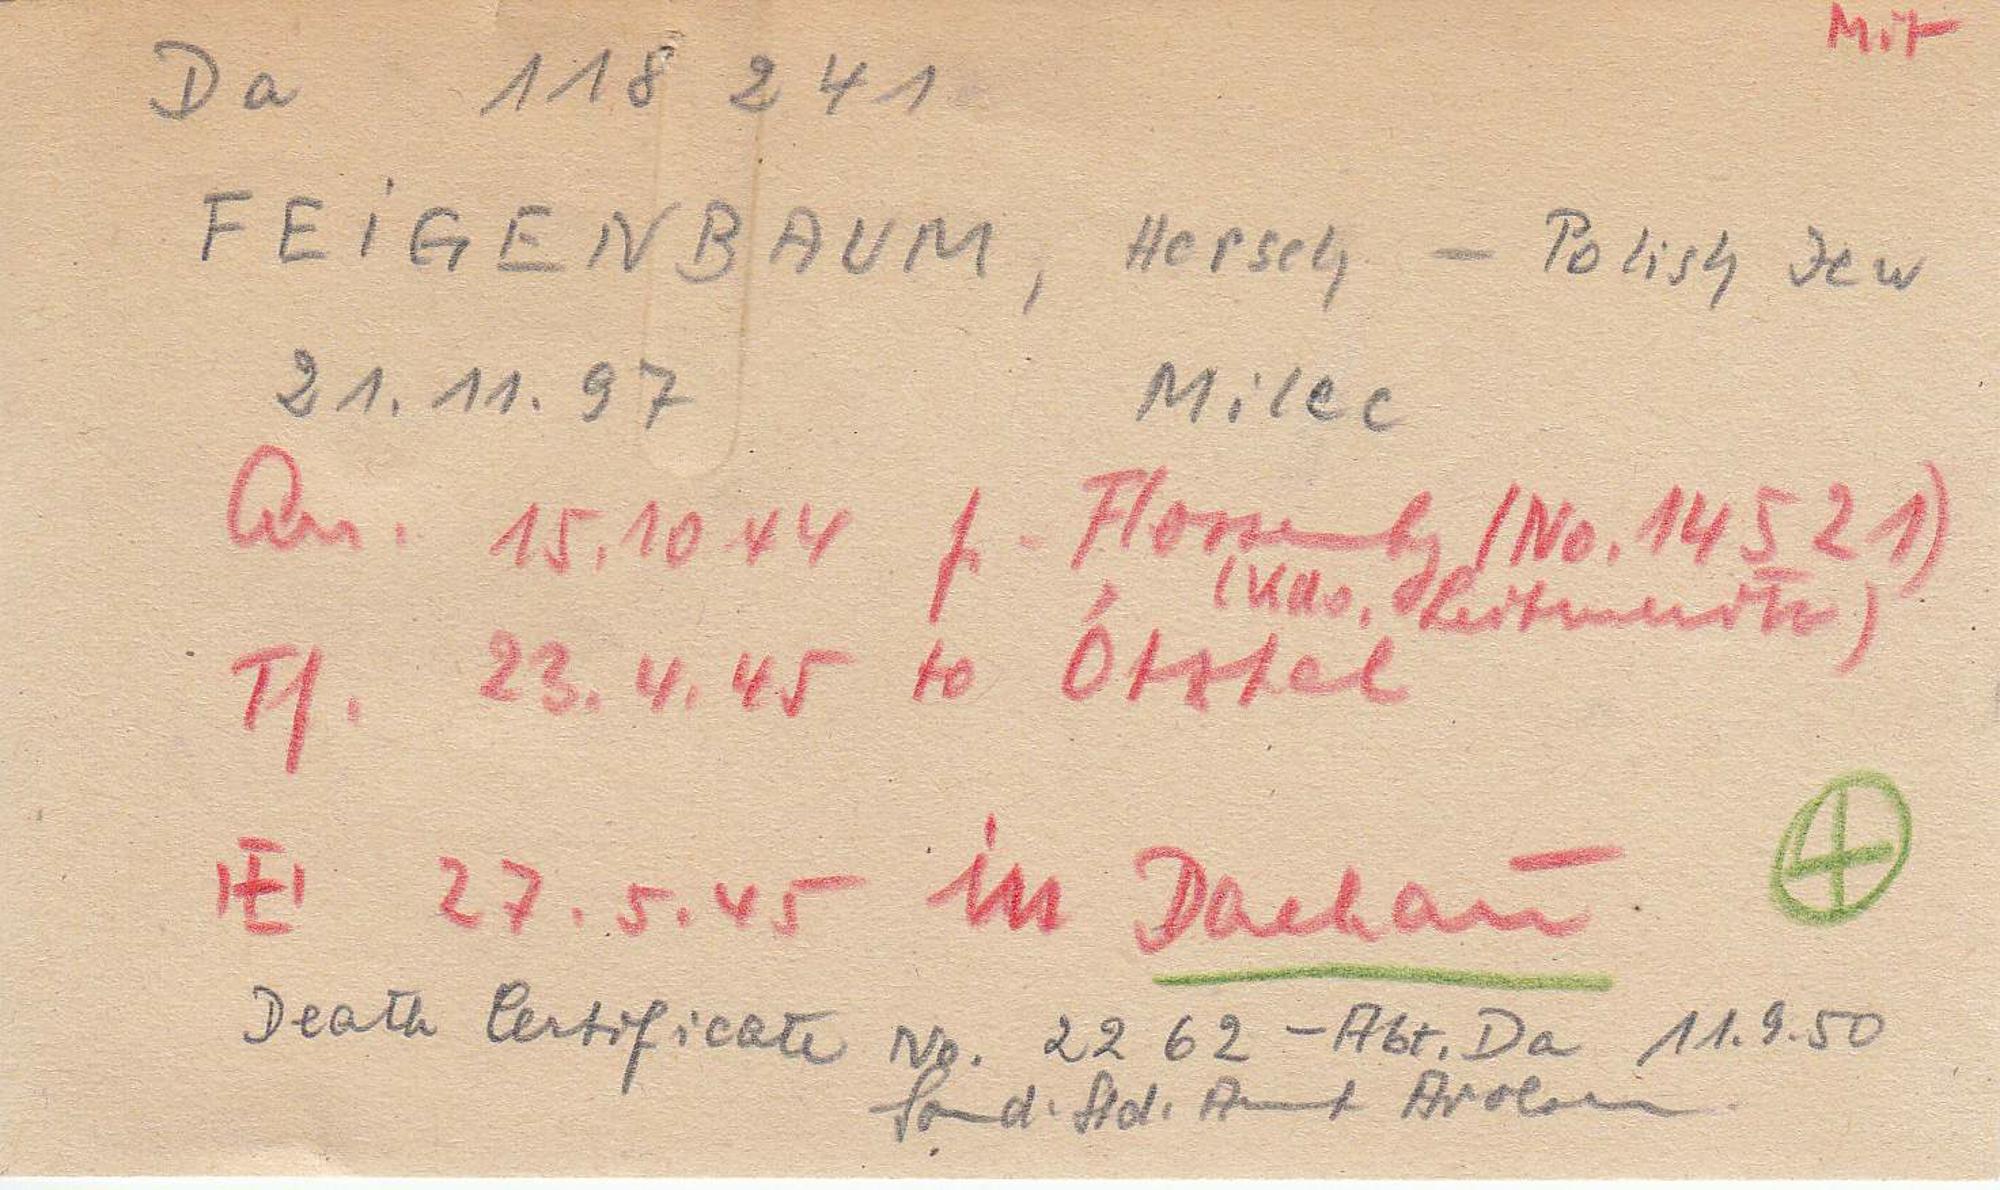 Mit
Da 118 241
FEIGENBAUM, Hersch - Polish Jew
21.11.97 Milec
Arr. 15.10.44 f. Flossenbg (No. 14521)
(Kdo. Leitmeritz)
Tf. 23.4.45 to Ötztal
27.5.45 in Dachau
Death Certificate No. 2262 - Abt. Da 11.9.50
Sond. Std. Amt Arolsen